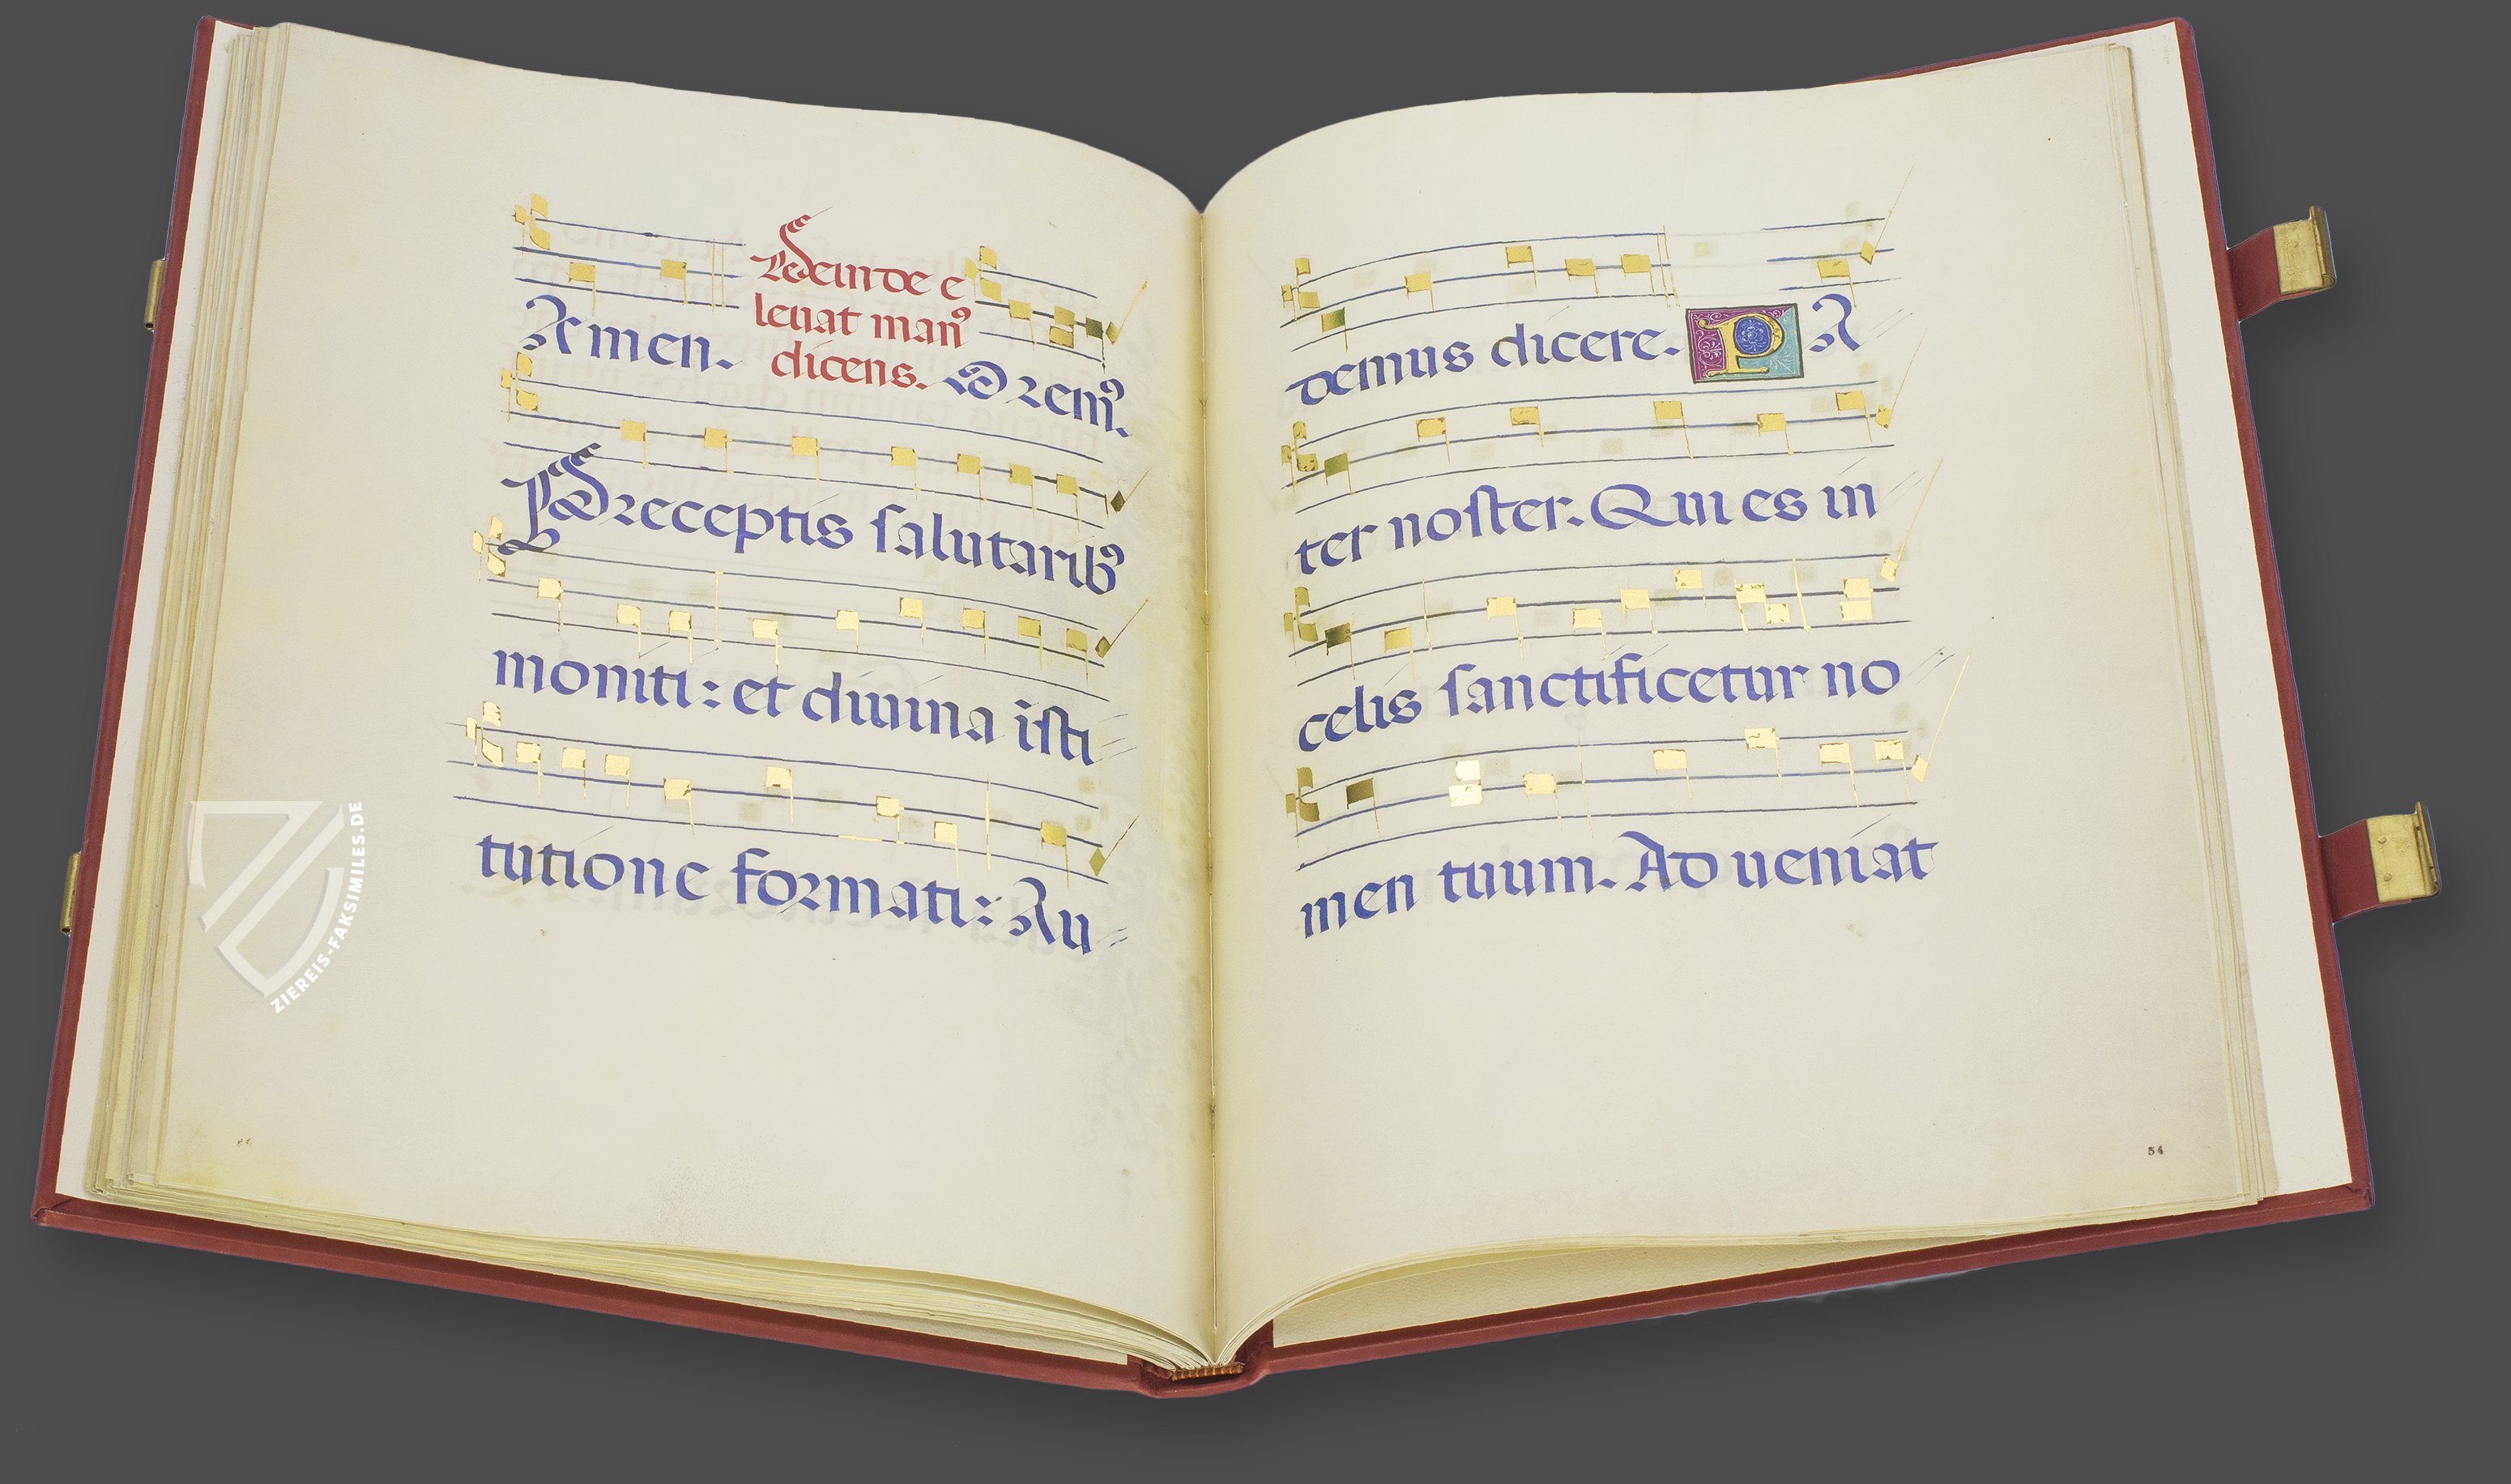 Amen.
Deinde e
leuat manꝰ
dicens. Oremꝰ.
Preceptis ſalutaribꝰ
moniti: et diuina iſti
tutione formati: Au
demus dicere. P A
ter noſter. Qui es in
celis ſanctificetur no
men tuum. Ad ueniat
54
ZIEREIS-FAKSIMILES.DE